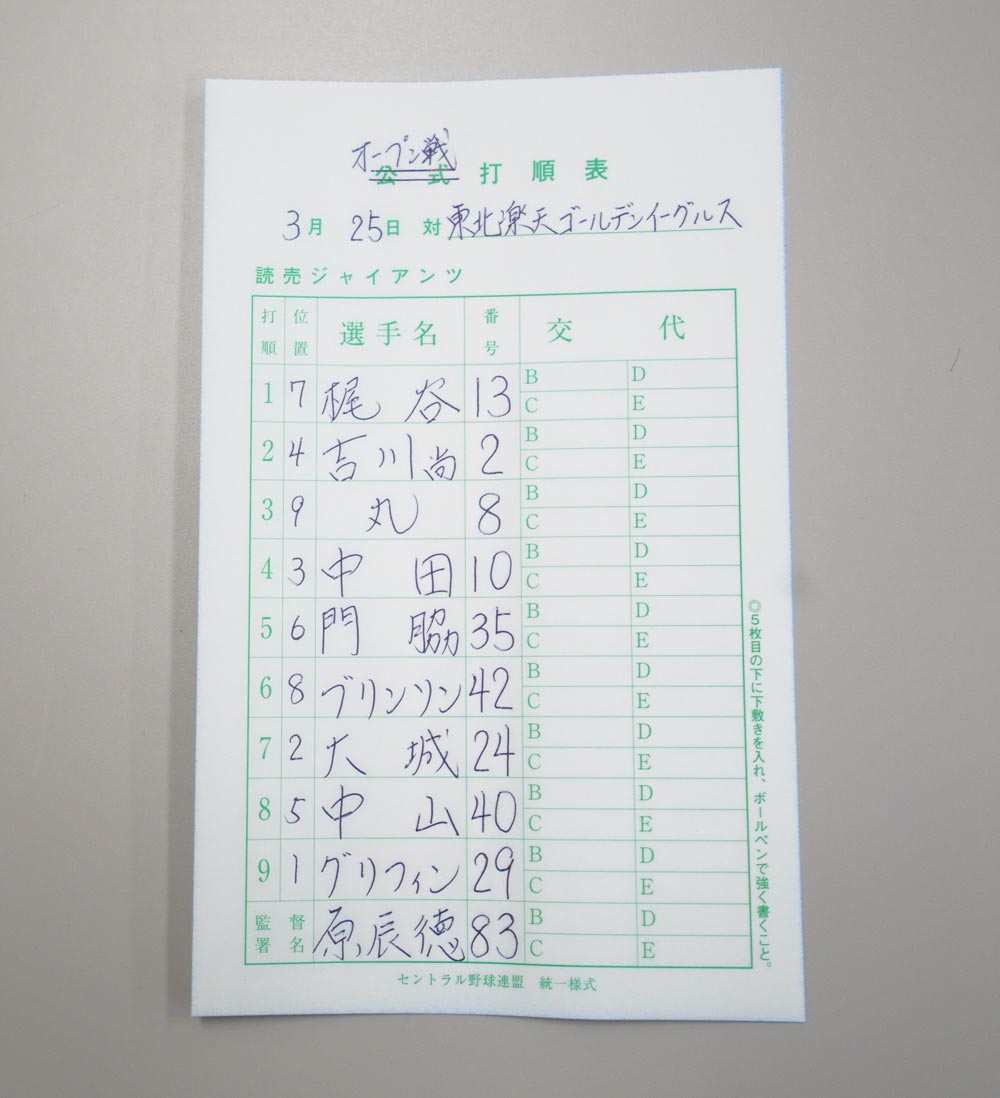 オープン戦
公式 打順表
3月 25日 対 東北楽天ゴールデンイーグルス
読売ジャイアンツ
打順 位置 選手名 番号 交代
1 7 梶谷 13 B D C E
2 4 吉川尚 2 B D C E
3 9 丸 8 B D C E
4 3 中田 10 B D C E
5 6 門脇 35 B D C E
6 8 ブリンソン 42 B D C E
7 2 大城 24 B D C E
8 5 中山 40 B D C E
9 1 グリフィン 29 B D C E
監督署名 原辰徳 83 B D C E
◎5枚目の下に下敷きを入れ、ボールペンで強く書くこと。
セントラル野球連盟 統一様式